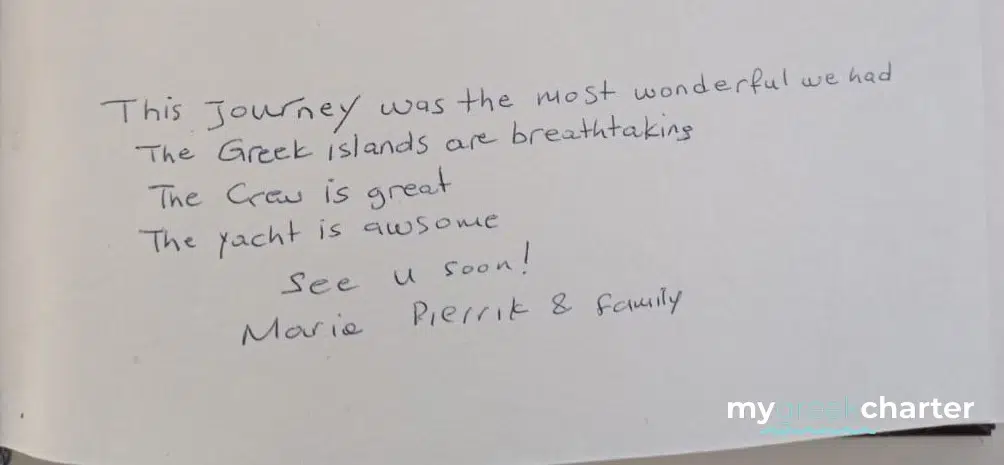 This Journey was the most wonderful we had
The Greek islands are breathtaking
The Crew is great
The yacht is awsome
See u soon!
Marie Pierrik & family
mygreekcharter